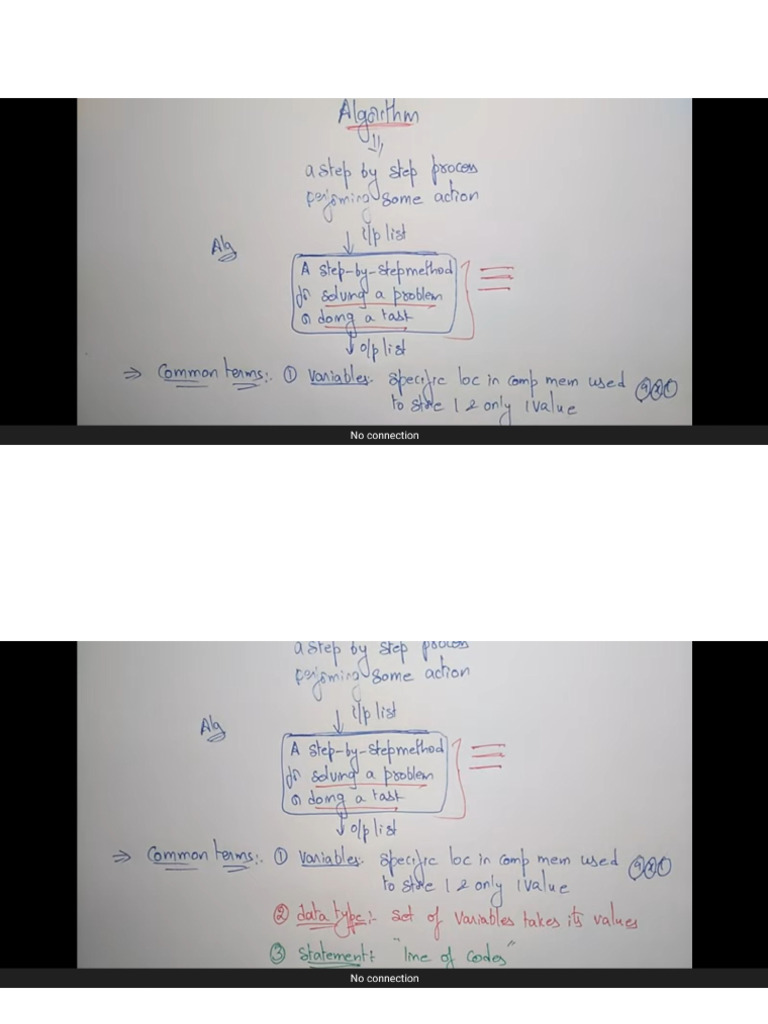 Algorithm
a step by step process
performing some action
i/p list
Alg
A step-by-step method
for solving a problem
or doing a task
o/p list
⇒ Common terms:. ① Variables. Specific loc in comp mem used
to store 1 & only 1 value
No connection
a step by step process
performing some action
i/p list
Alg
A step-by-step method
for solving a problem
or doing a task
o/p list
⇒ Common terms:. ① Variables. Specific loc in comp mem used
to store 1 & only 1 value
② data type:- set of variables takes its values
③ Statement:- "line of codes"
No connection